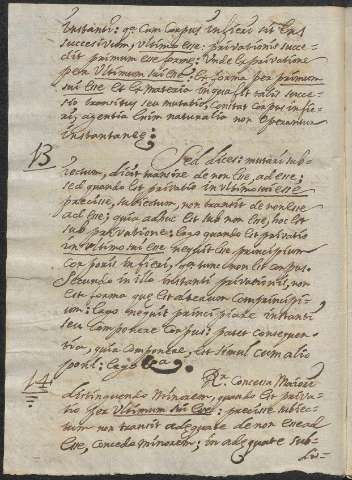 instanti: q.ª Cum Corpus in fieri sit Ens
succesivum, Ultimo esse: privationis succe-
dit primum esse formæ: Unde est privatione
per Ultimum sui esse: est forma per primum
sui esse et est materia in qua fit talis succe-
sio transitus seu mutatio, Constat corpus in fie-
ri, agentia enim naturalia non operantur
instantanee:
13 Sed dices: mutari sub-
jectum, dicit transire de non esse, ad esse;
sed quando est privatio in ultimo sui esse
præcisse, subiectum, non transit de non esse
ad esse; quia adhuc est sub non esse, hoc est
sub privatione: Ergo quando est privatio
in ultimo sui esse nequit esse principium
Corporis in fieri, est tunc non est corpus.
Secundo in illo instanti privationis, non
est forma quæ est alterum Comprincipi-
um: Ergo nequit principiare in tanti
seu Componere Corpus: patet consequen-
tia, quia Componere, est simul cum alio
poni: Ergo
14 R. Concessa Maiore
distinguendo Minorem, quando est priva-
tio per Ultimum sui esse: precisse subiec-
tum non transit adequate de non esse ad
esse, Concedo minorem; inadequate sub-
dis-